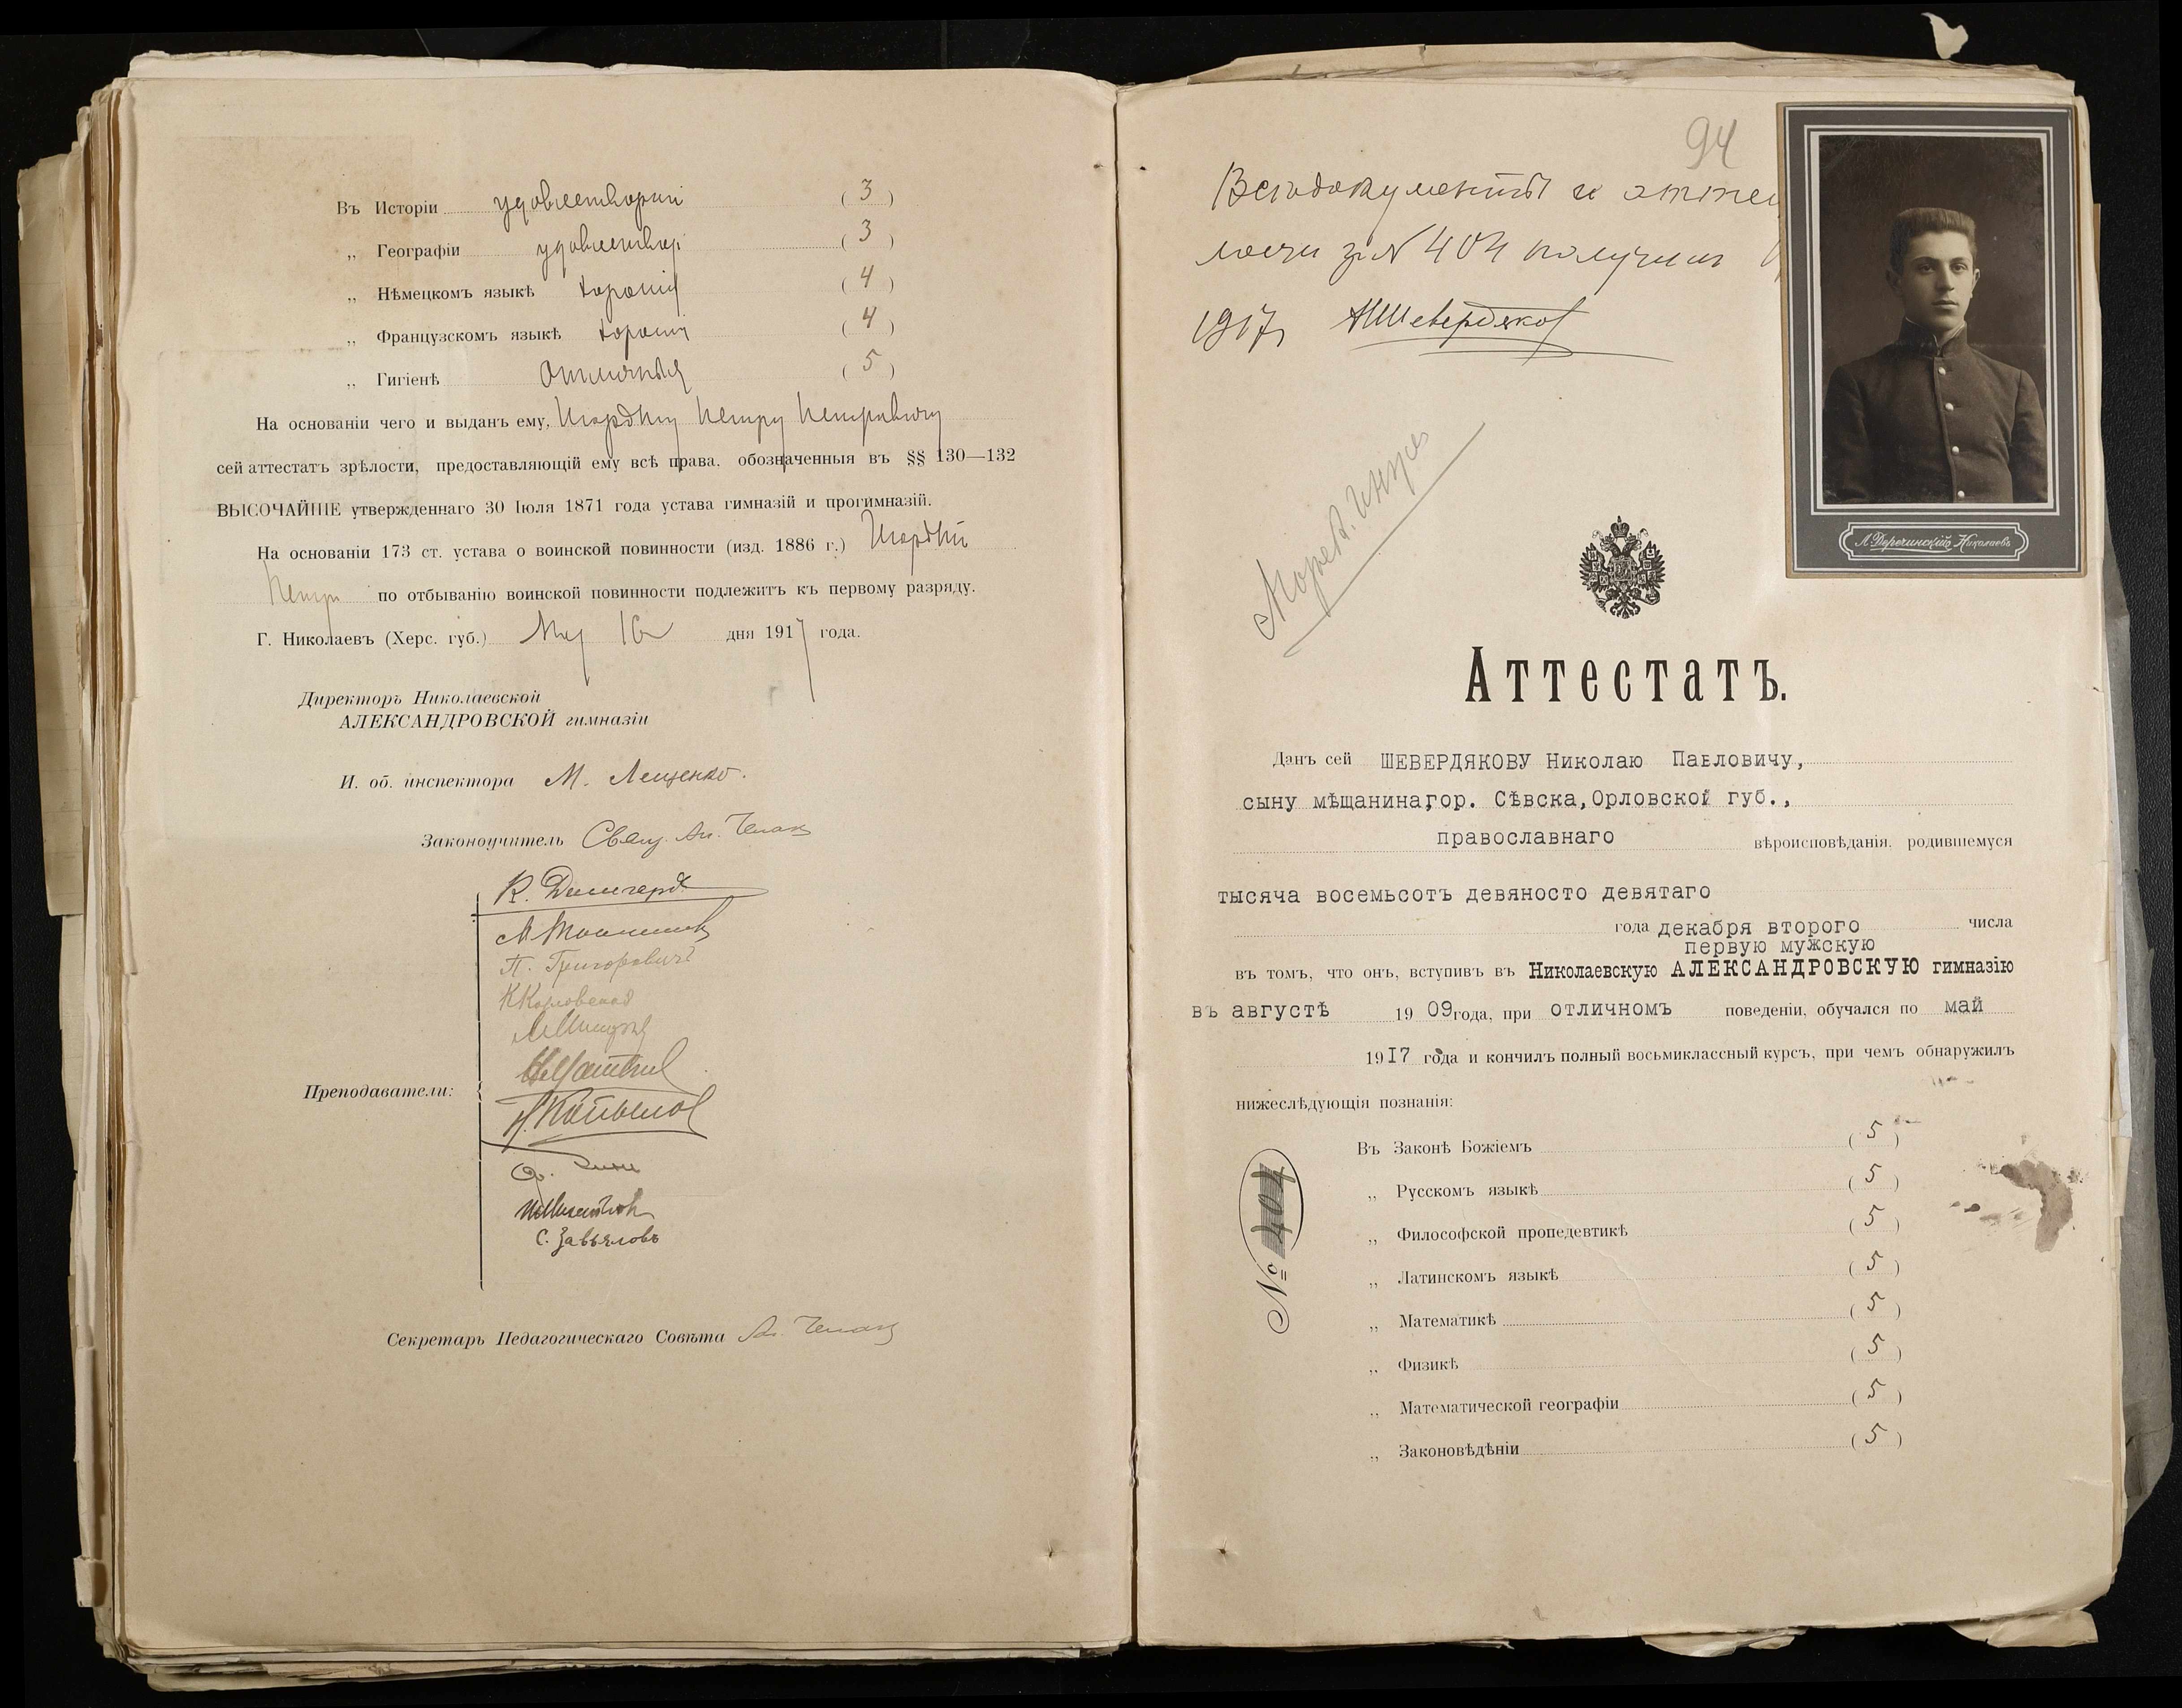 Въ Исторіи удовлетворит (3)
„ Географіи удовлетвор (3)
„ Нѣмецкомъ языкѣ хорошія (4)
„ Французскомъ языкѣ хорошія (4)
„ Гигіенѣ Отличныя (5)
На основаніи чего и выданъ ему, Петру Петровичу
сей аттестатъ зрѣлости, предоставляющій ему всѣ права, обозначенныя въ §§ 130—132
ВЫСОЧАЙШЕ утвержденнаго 30 Іюля 1871 года устава гимназій и прогимназій.
На основаніи 173 ст. устава о воинской повинности (изд. 1886 г.)
Петръ по отбыванію воинской повинности подлежитъ къ первому разряду.
Г. Николаевъ (Херс. губ.) дня 1917 года.
Директоръ Николаевской
АЛЕКСАНДРОВСКОЙ гимназіи
И. об. инспектора М. Лещенко.
Законоучитель Свящ. Ал.
П. Григоровичъ
Преподаватели:
С. Завьяловъ
Секретарь Педагогическаго Совѣта Ал.
94
документы и аттес
за № 404 получилъ
1917 НШевердяков
Аттестатъ.
Данъ сей ШЕВЕРДЯКОВУ Николаю Павловичу,
сыну мѣщанина,гор. Сѣвска,Орловской губ.,
православнаго вѣроисповѣданія, родившемуся
тысяча восемьсотъ девяносто девятаго
года декабря второго числа
первую мужскую
въ томъ, что онъ, вступивъ въ Николаевскую АЛЕКСАНДРОВСКУЮ гимназію
въ августѣ 1909 года, при отличномъ поведеніи, обучался по май
1917 года и кончилъ полный восьмиклассный курсъ, при чемъ обнаружилъ
нижеслѣдующія познанія:
Въ Законѣ Божіемъ (5)
„ Русскомъ языкѣ (5)
„ Философской пропедевтикѣ (5)
„ Латинскомъ языкѣ (5)
„ Математикѣ (5)
„ Физикѣ (5)
„ Математической географіи (5)
„ Законовѣдѣніи (5)
№ 404
Николаевъ